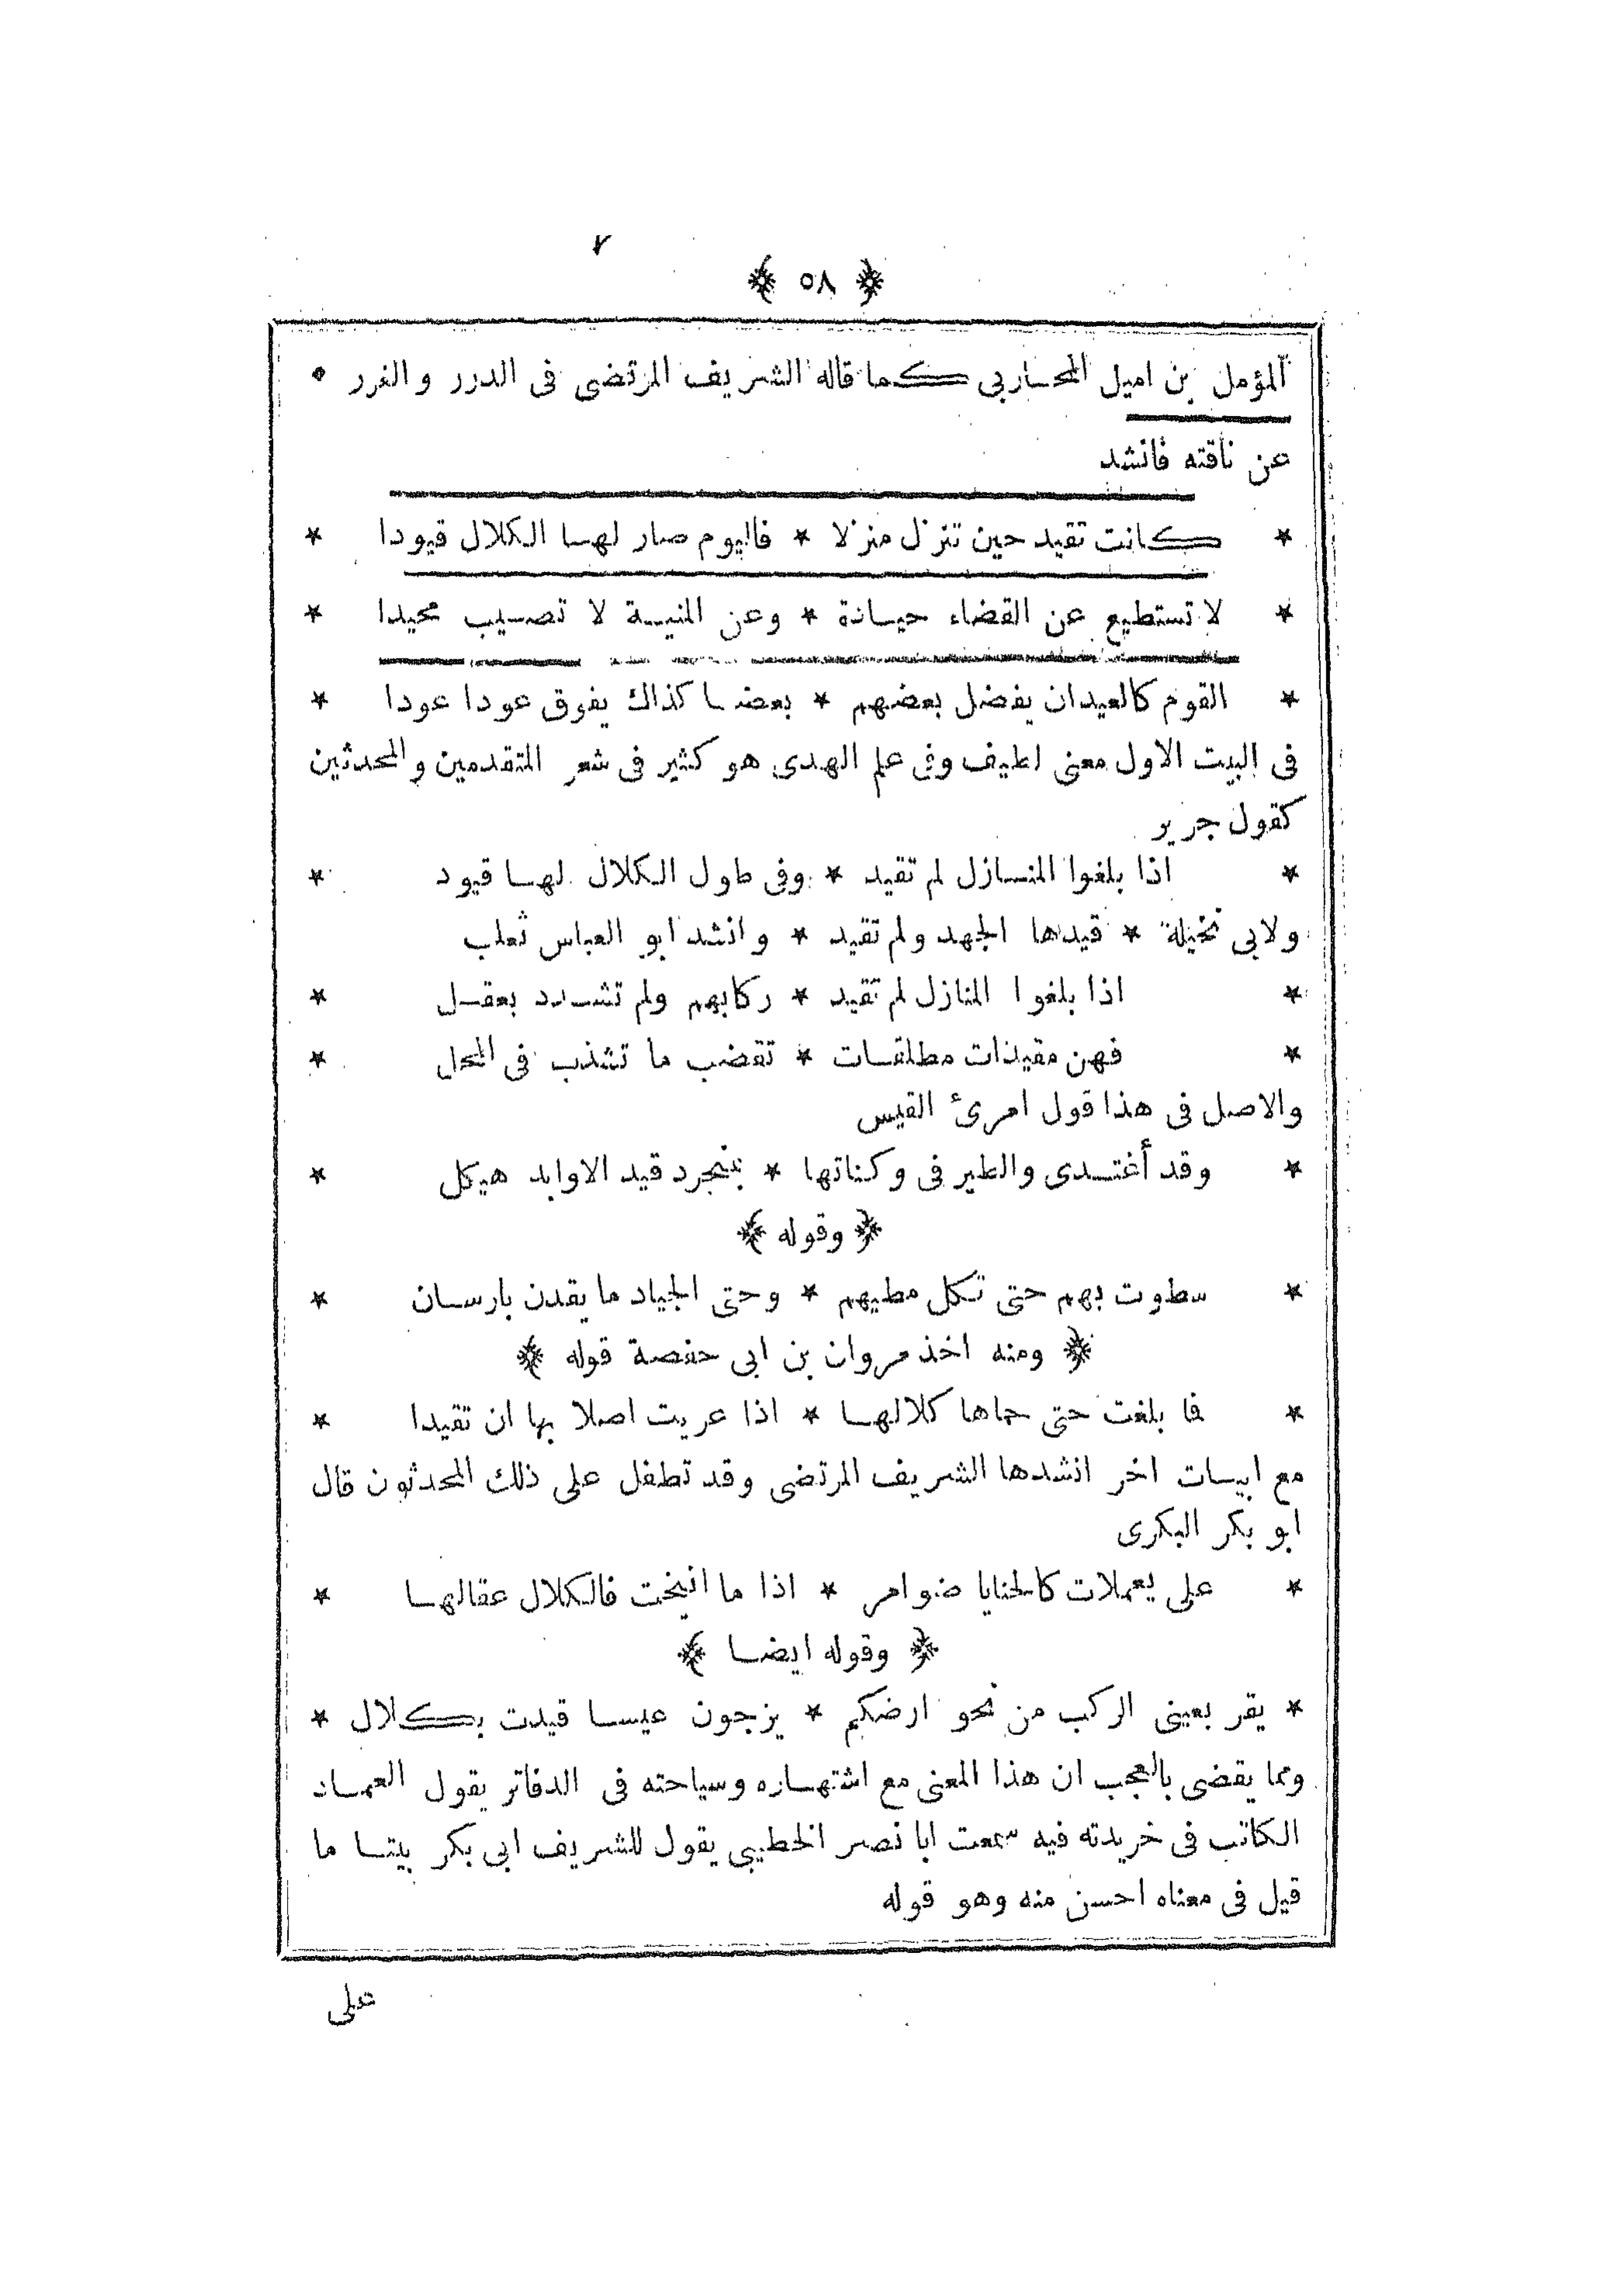 ﴿ ٥٨ ﴾
المؤمل بن اميل المحاربى كما قاله الشريف المرتضى فى الدرر والغرر •
عن ناقته فانشد
* كانت تقيد حين تنزل منزلا * فاليوم صار لها الكلال قيودا *
* لا تستطيع عن القضاء حيادة * وعن المنية لا تصيب محيدا *
* القوم كالعيدان يفضل بعضهم * بعضا كذاك يفوق عودا عودا *
فى البيت الاول معنى لطيف وفى علم الهدى هو كثير فى شعر المتقدمين والمحدثين
كقول جرير
* اذا بلغوا المنازل لم تقيد * وفى طول الكلال لها قيود *
ولابى نخيلة * قيدها الجهد ولم تقيد * وانشد ابو العباس ثعلب
* اذا بلغوا المنازل لم تقيد * ركابهم ولم تشدد بعقل *
* فهن مقيدات مطلقات * تقضب ما تشذب فى المحل *
والاصل فى هذا قول امرئ القيس
* وقد أغتدى والطير فى وكناتها * بمنجرد قيد الاوابد هيكل *
﴿ وقوله ﴾
* سطوت بهم حتى تكل مطيهم * وحتى الجياد ما يقدن بارسان *
﴿ ومنه اخذ مروان بن ابى حفصة قوله ﴾
* فما بلغت حتى حماها كلالها * اذا عريت اصلا بها ان تقيدا *
مع ابيات اخر انشدها الشريف المرتضى وقد تطفل على ذلك المحدثون قال
ابو بكر البكرى
* على يعملات كالحنايا ضوامر * اذا ما انيخت فالكلال عقالها *
﴿ وقوله ايضا ﴾
* يقر بعينى الركب من نحو ارضكم * يزجون عيسا قيدت بكلال *
ومما يقضى بالعجب ان هذا المعنى مع اشتهاره وسياحته فى الدفاتر يقول العماد
الكاتب فى خريدته فيه سمعت ابا نصر الخطيبى يقول للشريف ابى بكر بيتا ما
قيل فى معناه احسن منه وهو قوله
على